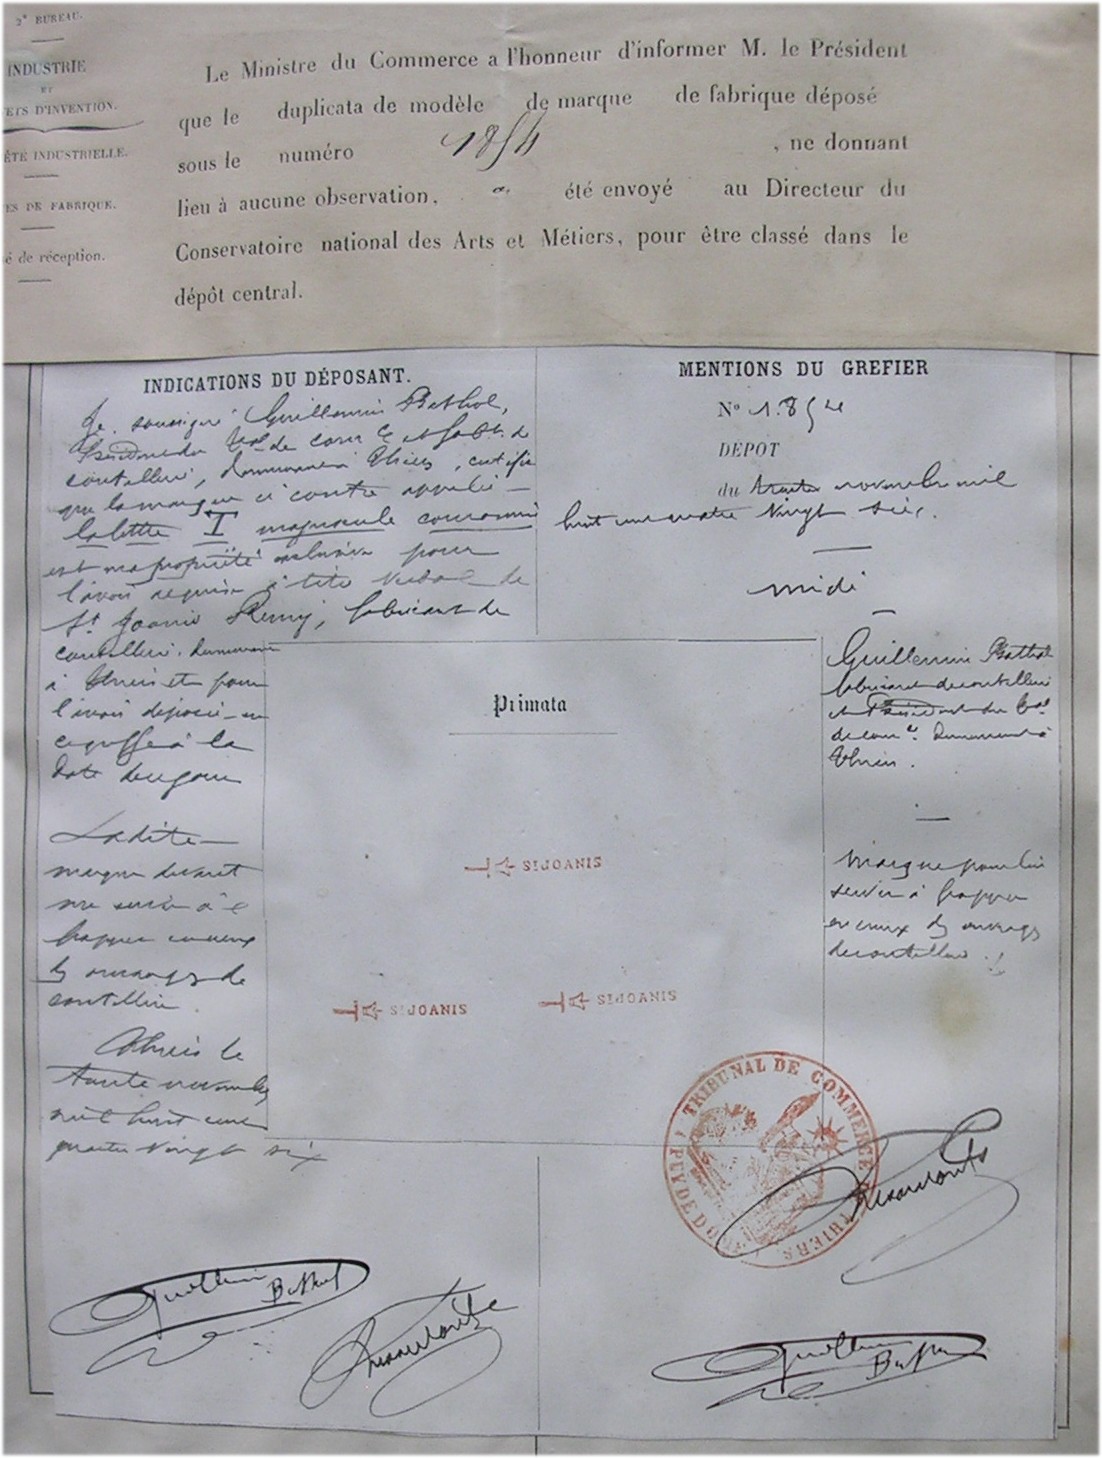 2e BUREAU.
INDUSTRIE
ET
ETS D'INVENTION.
ÉTÉ INDUSTRIELLE.
ES DE FABRIQUE.
é de réception.
Le Ministre du Commerce a l'honneur d'informer M. le Président
que le duplicata de modèle de marque de fabrique déposé
sous le numéro 1854, ne donnant
lieu à aucune observation, a été envoyé au Directeur du
Conservatoire national des Arts et Métiers, pour être classé dans le
dépôt central.
INDICATIONS DU DÉPOSANT.
Je soussigné Guillemin Bathol,
Président du Tal de comce et fabt de
coutellerie, demeurant à Thiers, certifie
que la marque ci contre appelée
la lettre T majuscule couronné
est ma propriété exclusive pour
l'avoir acquise à titre verbal de
St Joanis Remy, fabricant de
coutellerie, demeurant
à Thiers et pour
l'avoir déposée au
ce greffe à la
date de ce jour
Ladite
marque devant
me servir à
frapper en creux
les ouvrages de
coutellerie.
Thiers le
trente novembre
mil huit cent
quatre vingt six
MENTIONS DU GREFIER
No 1.854
DÉPOT
du trente novembre mil
huit cent quatre vingt six.
midi
Guillemin Bathol
fabricant de coutellerie
et Président du Tal
de comce demeurant à
Thiers.
Marque pour lui
servir à frapper
en creux les ouvrages
de coutellerie.
Primata
ST JOANIS
ST JOANIS
ST JOANIS
TRIBUNAL DE COMMERCE
THIERS
PUY DE DOME
Guillemin
Bathol
Guillemin
Bathol